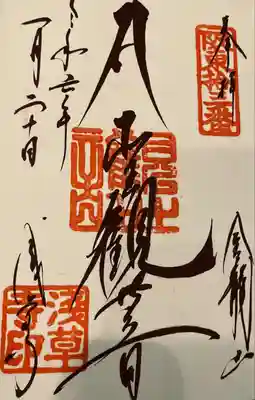 奉拝
金龍山
聖観世音
令和六年
一月二十日
浅草寺
浅草寺印